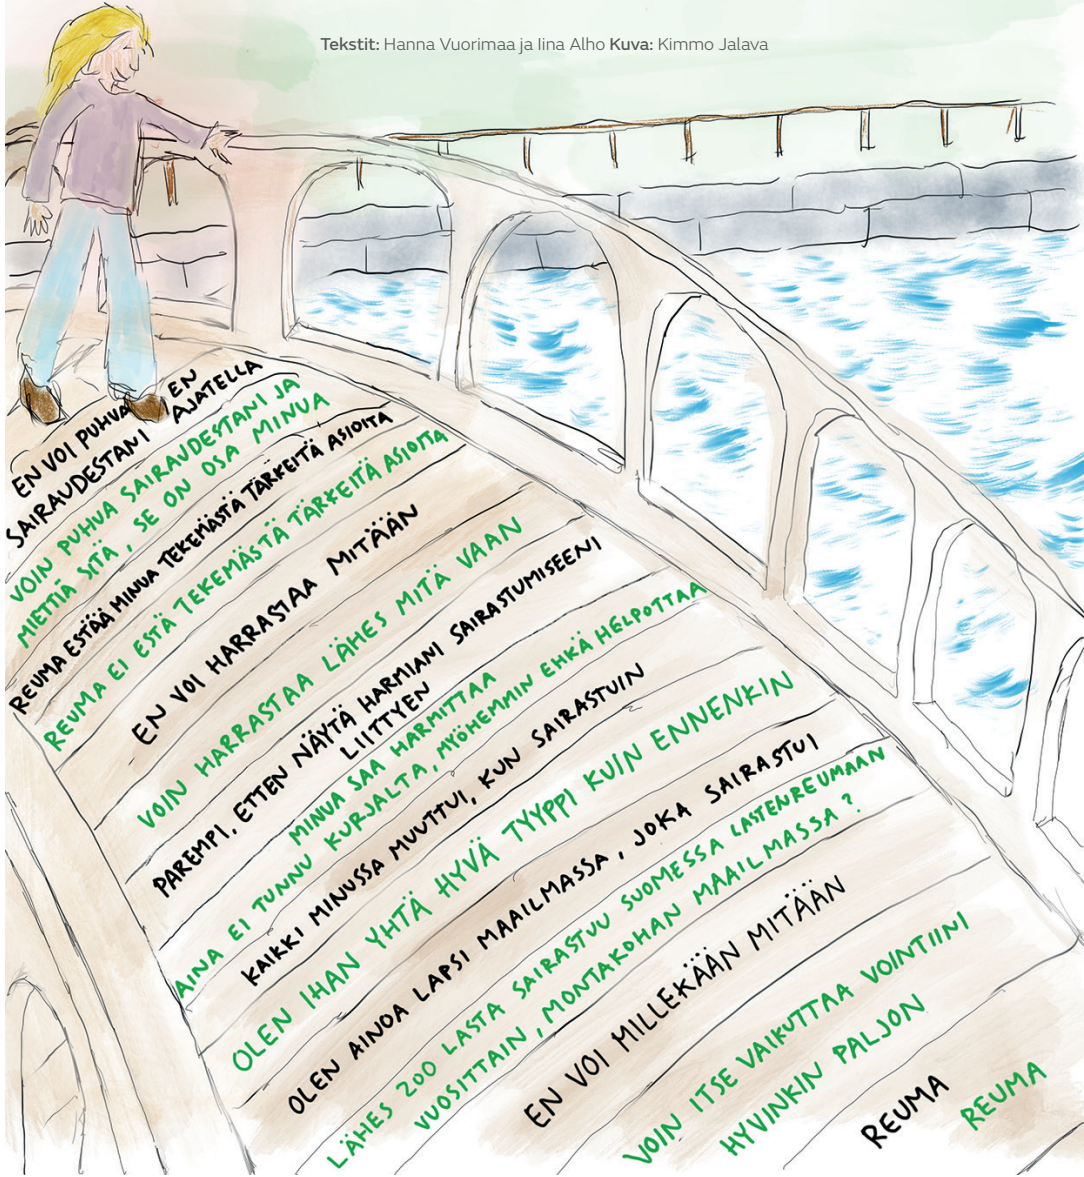 Tekstit: Hanna Vuorimaa ja Iina Alho Kuva: Kimmo Jalava
EN VOI PUHUA
SAIRAUDESTANI
EN
AJATELLA
VOIN PUHUA SAIRAUDESTANI JA
MIETTIÄ SITÄ, SE ON OSA MINUA
REUMA ESTÄÄ MINUA TEKEMÄSTÄ TÄRKEITÄ ASIOITA
REUMA EI ESTÄ TEKEMÄSTÄ TÄRKEITÄ ASIOITA
EN VOI HARRASTAA MITÄÄN
VOIN HARRASTAA LÄHES MITÄ VAAN
PAREMPI, ETTEN NÄYTÄ HARMIANI SAIRASTUMISEENI
LIITTYEN
MINUA SAA HARMITTAA
AINA EI TUNNU KURJALTA, MYÖHEMMIN EHKÄ HELPOTTAA
KAIKKI MINUSSA MUUTTUI, KUN SAIRASTUIN
OLEN IHAN YHTÄ HYVÄ TYYPPI KUIN ENNENKIN
OLEN AINOA LAPSI MAAILMASSA, JOKA SAIRASTUI
LÄHES 200 LASTA SAIRASTUU SUOMESSA LASTENREUMAAN
VUOSITTAIN, MONTAKOHAN MAAILMASSA?
EN VOI MILLEKÄÄN MITÄÄN
VOIN ITSE VAIKUTTAA VOINTIINI
HYVINKIN PALJON
REUMA
REUMA